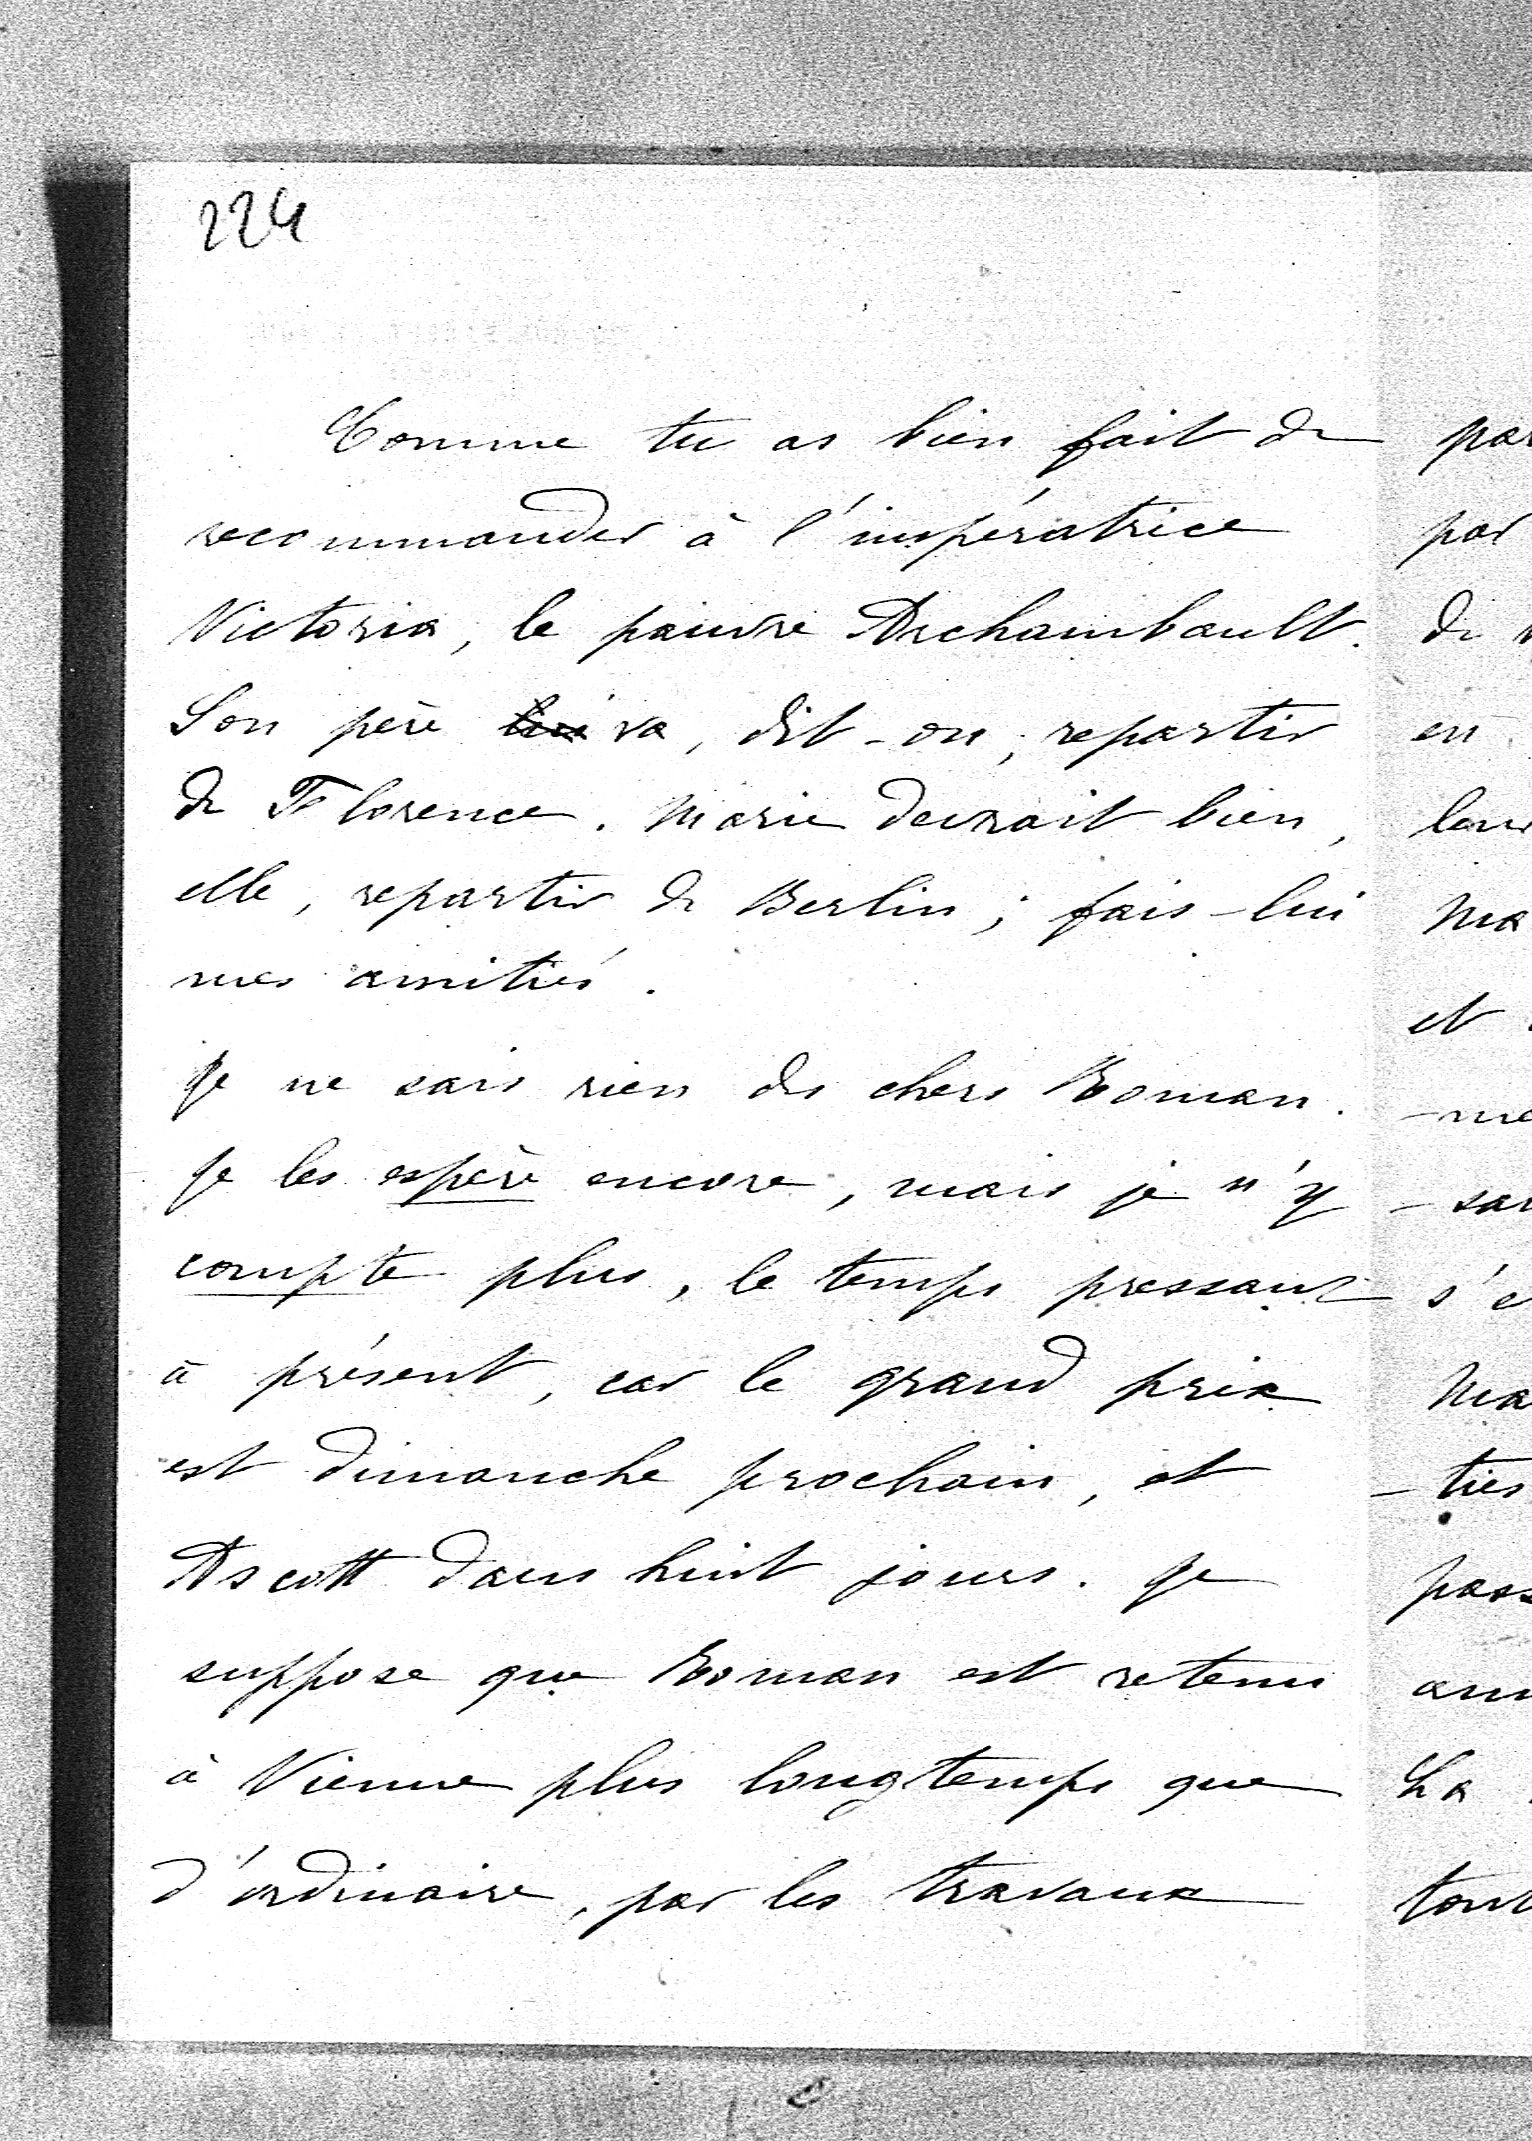 224
Comme tu as bien fait de
recommander à l'impératrice
Victoria, le pauvre Archambault.
Son père va, dit-on, repartir
de Florence. Marie devrait bien,
elle, repartir de Berlin ; fais-lui
mes amitiés.
Je ne sais rien des chers Roman.
Je les espère encore, mais je n'y
compte plus, le temps pressant
à présent, car le grand prix
est dimanche prochain, et
Ascott dans huit jours. Je
suppose que Roman est retenu
à Vienne plus longtemps que
d'ordinaire, par les travaux
par
de
en
Ma
et
s'e
Ma
-ties
La